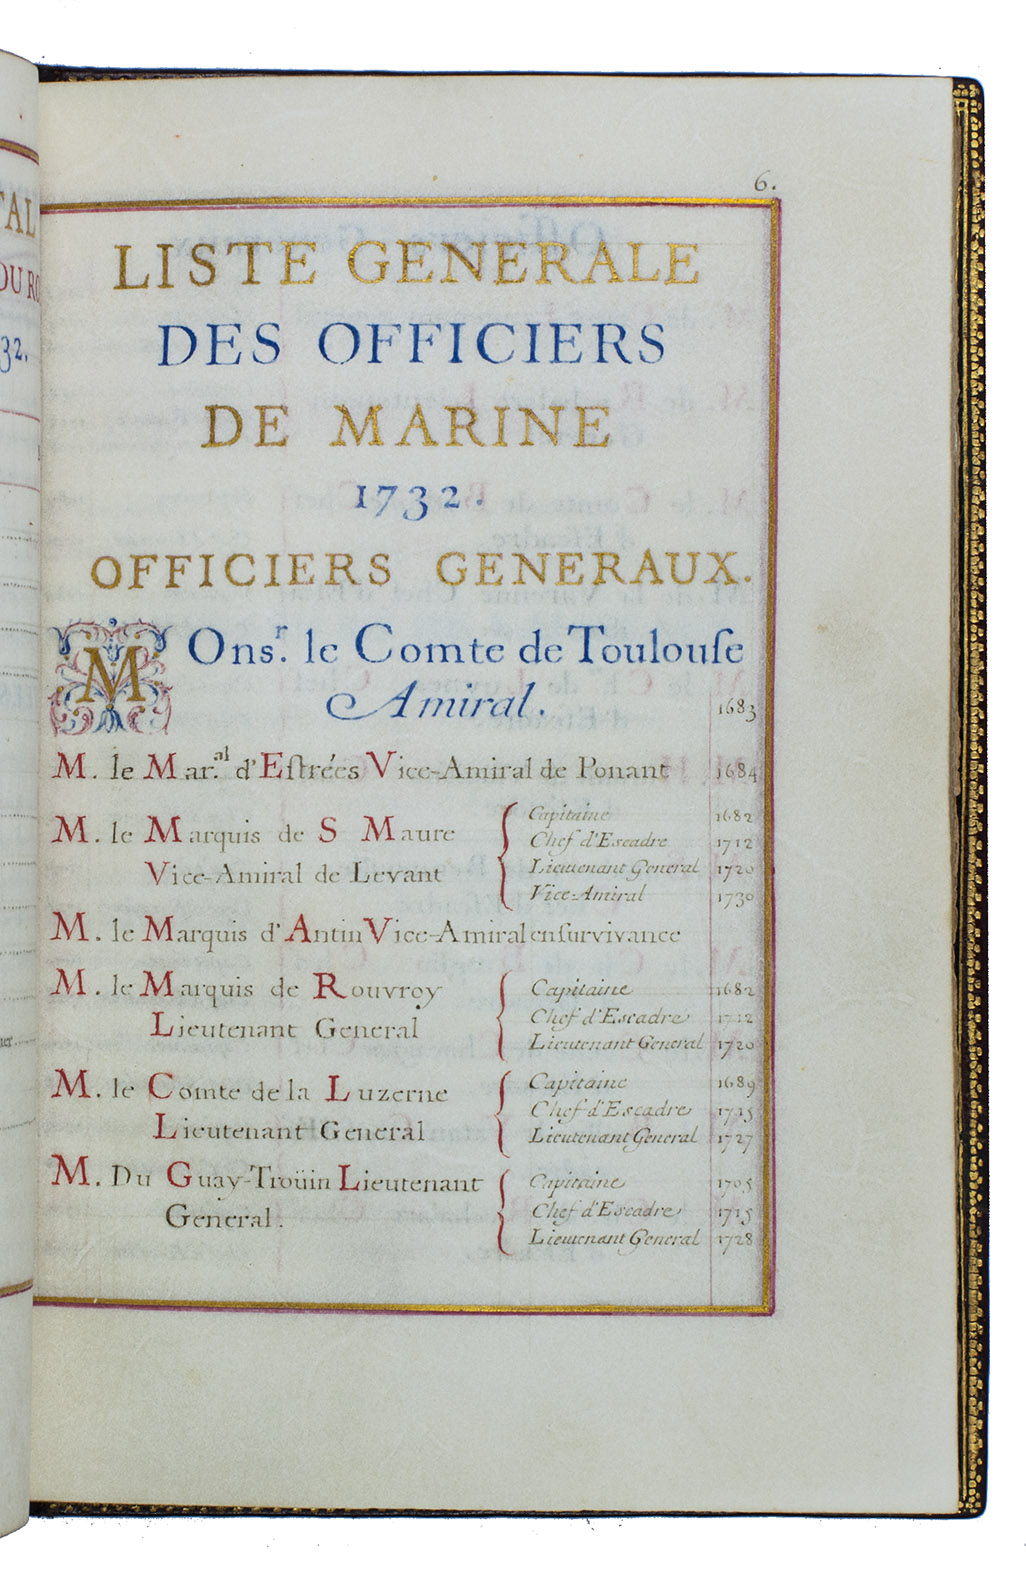 6.
LISTE GENERALE
DES OFFICIERS
DE MARINE
1732.
OFFICIERS GENERAUX.
MOnsr. le Comte de Toulouſe
Amiral. 1683
M. le Mar.al d'Eſtrées Vice-Amiral de Ponant 1684
M. le Marquis de S Maure
Vice-Amiral de Levant
Capitaine 1682
Chef d'Escadre 1712
Lieutenant General 1720
Vice-Amiral 1730
M. le Marquis d'Antin Vice-Amiral en survivance
M. le Marquis de Rouvroy
Lieutenant General
Capitaine 1682
Chef d'Escadre 1712
Lieutenant General 1720
M. le Comte de la Luzerne
Lieutenant General
Capitaine 1689
Chef d'Escadre 1715
Lieutenant General 1727
M. Du Guay-Troüin Lieutenant
General.
Capitaine 1705
Chef d'Escadre 1715
Lieutenant General 1728